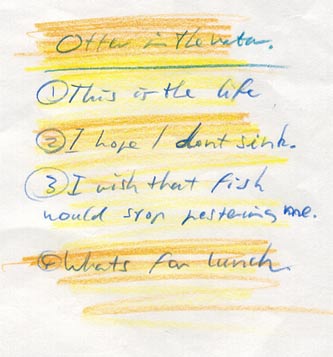 Otter in the water.
① This is the life
② I hope I dont sink.
③ I wish that fish
would stop pestering me.
④ Whats for lunch.